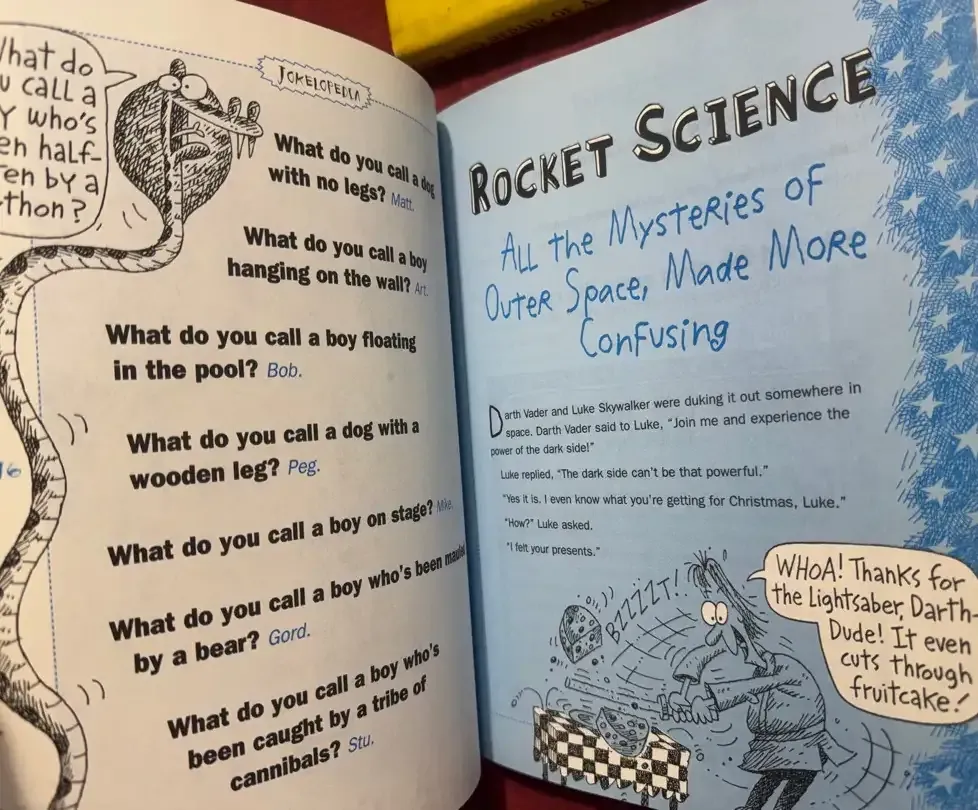 What do
call a
who's
half-
by a
JOKELOPEDIA
What do you call a dog
with no legs? Matt.
What do you call a boy
hanging on the wall? Art.
What do you call a boy floating
in the pool? Bob.
What do you call a dog with a
wooden leg? Peg.
What do you call a boy on stage? Mike.
What do you call a boy who's been mauled
by a bear? Gord.
What do you call a boy who's
been caught by a tribe of
cannibals? Stu.
ROCKET SCIENCE
ALL the MysteRies of
OuteR Space, Made MoRe
Confusing
Darth Vader and Luke Skywalker were duking it out somewhere in
space. Darth Vader said to Luke, "Join me and experience the
power of the dark side!"
Luke replied, "The dark side can't be that powerful."
"Yes it is. I even know what you're getting for Christmas, Luke."
"How?" Luke asked.
"I felt your presents."
BZZZZT!
WHOA! Thanks for
the Lightsaber, Darth-
Dude! It even
cuts through
fruitcake!